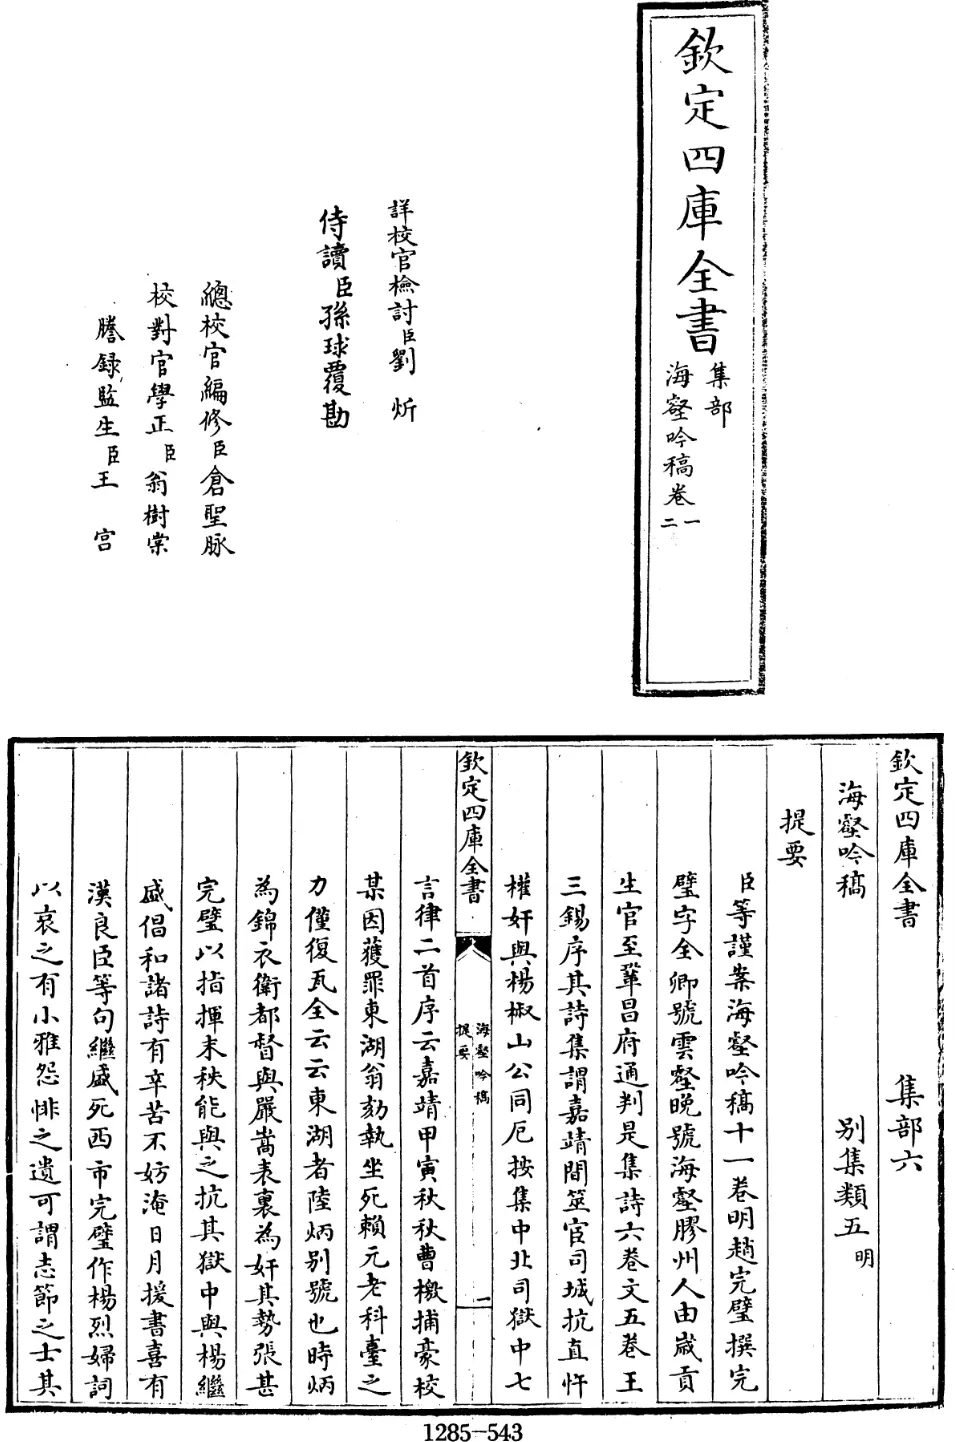 欽定四庫全書
集部
海壑吟稿卷一
二
詳校官檢討臣劉炘
侍讀臣孫球覆勘
總校官編修臣倉聖脉
校對官學正臣翁樹棠
謄録監生臣王宫
欽定四庫全書 集部六
海壑吟稿 别集類五明
提要
臣等謹案海壑吟稿十一巻明趙完璧撰完
璧字全卿號雲壑晚號海壑膠州人由嵗貢
生官至鞏昌府通判是集詩六卷文五卷王
三錫序其詩集謂嘉靖間筮官司城抗直忤
權奸與楊椒山公同厄按集中北司獄中七
欽定四庫全書
海壑吟稿
提要
一
言律二首序云嘉靖甲寅秋秋曹檄捕豪校
某因獲罪東湖翁劾執坐死賴元老科臺之
力僅復瓦全云云東湖者陸炳别號也時炳
為錦衣衛都督與嚴嵩表裏為奸其勢張甚
完璧以指揮末秩能與之抗其獄中與楊繼
盛倡和諸詩有辛苦不妨淹日月援書喜有
漢良臣等句繼盛死西市完璧作楊烈婦詞
以哀之有小雅怨悱之遺可謂志節之士其
1285-543